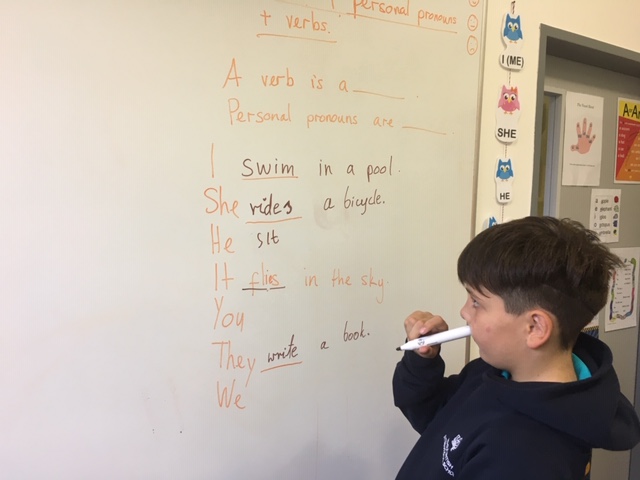 personal pronouns
+ verbs.
A verb is a ____.
Personal pronouns are ____
I swim in a pool.
She rides a bicycle.
He sit
It flies in the sky.
You
They write a book.
We
I (ME)
SHE
HE